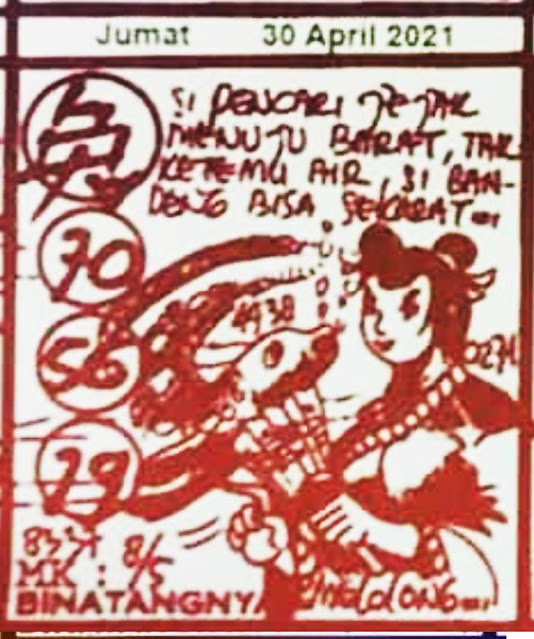 Jumat 30 April 2021
SI PENCARI JEJAK
MENUJU BARAT, TAK
KETEMU AIR, SI BAN-
DENG BISA SEKARAT...
70
56
4438
79
8/5
MK :
BINATANGNYA
MELOLONG...